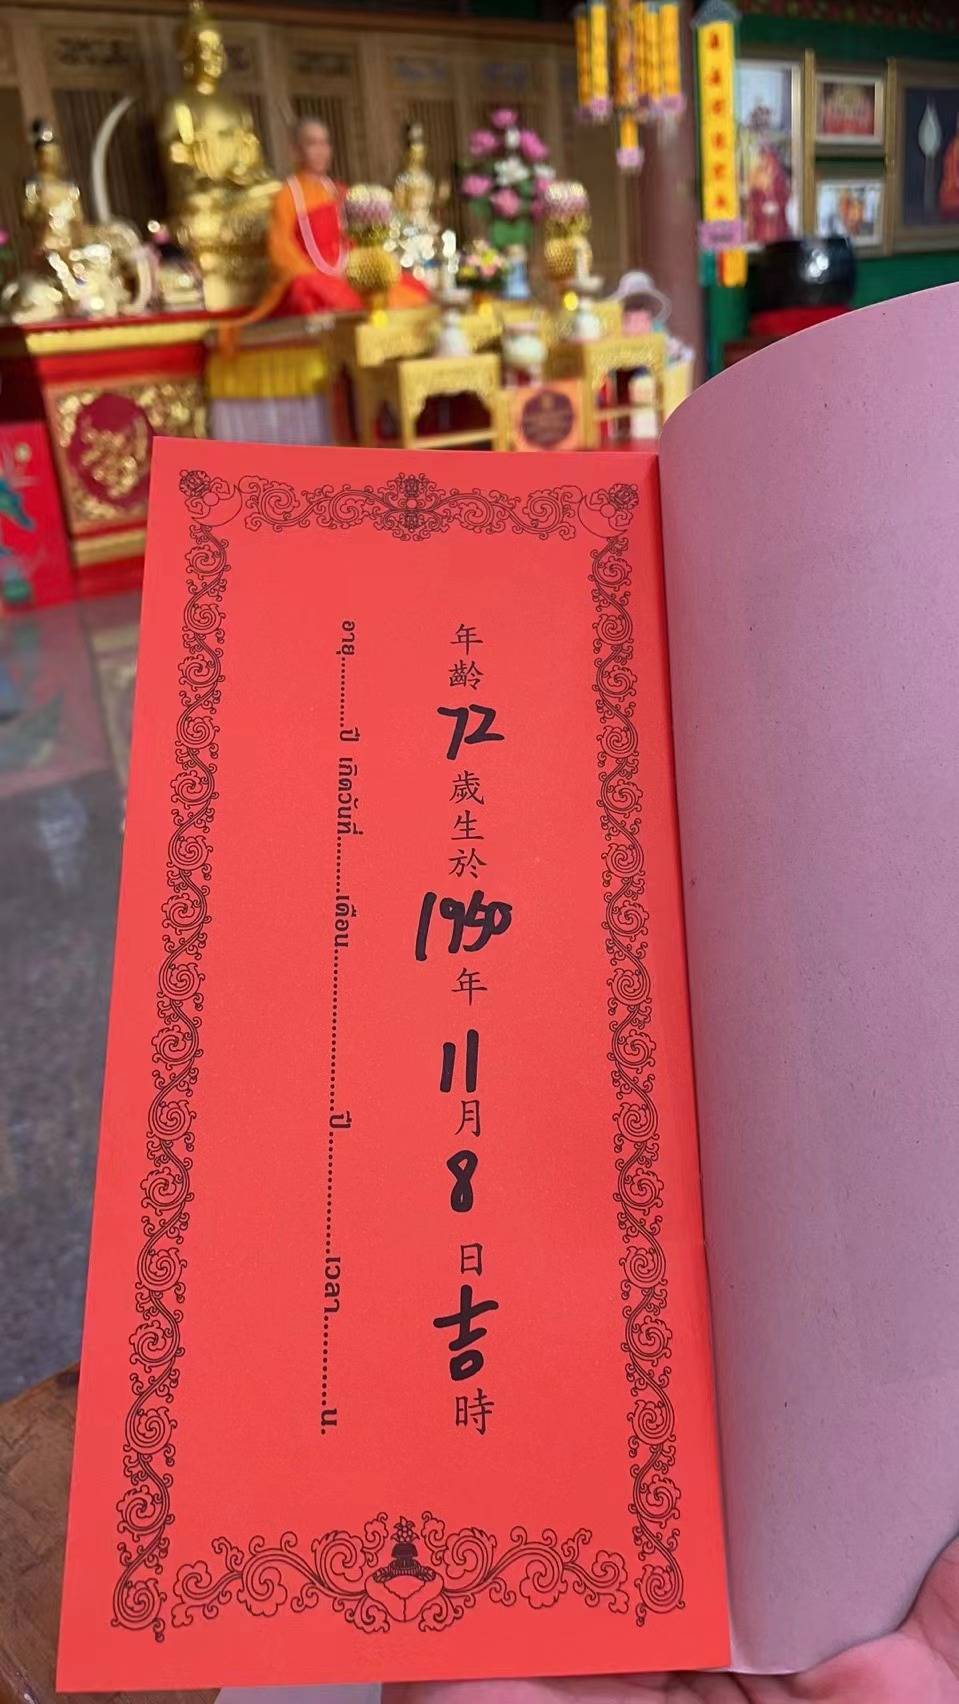 年齡72歲生於1950年11月8日吉時
อายุ..........ปี เกิดวันที่.........เดือน......................ปี................เวลา............น.